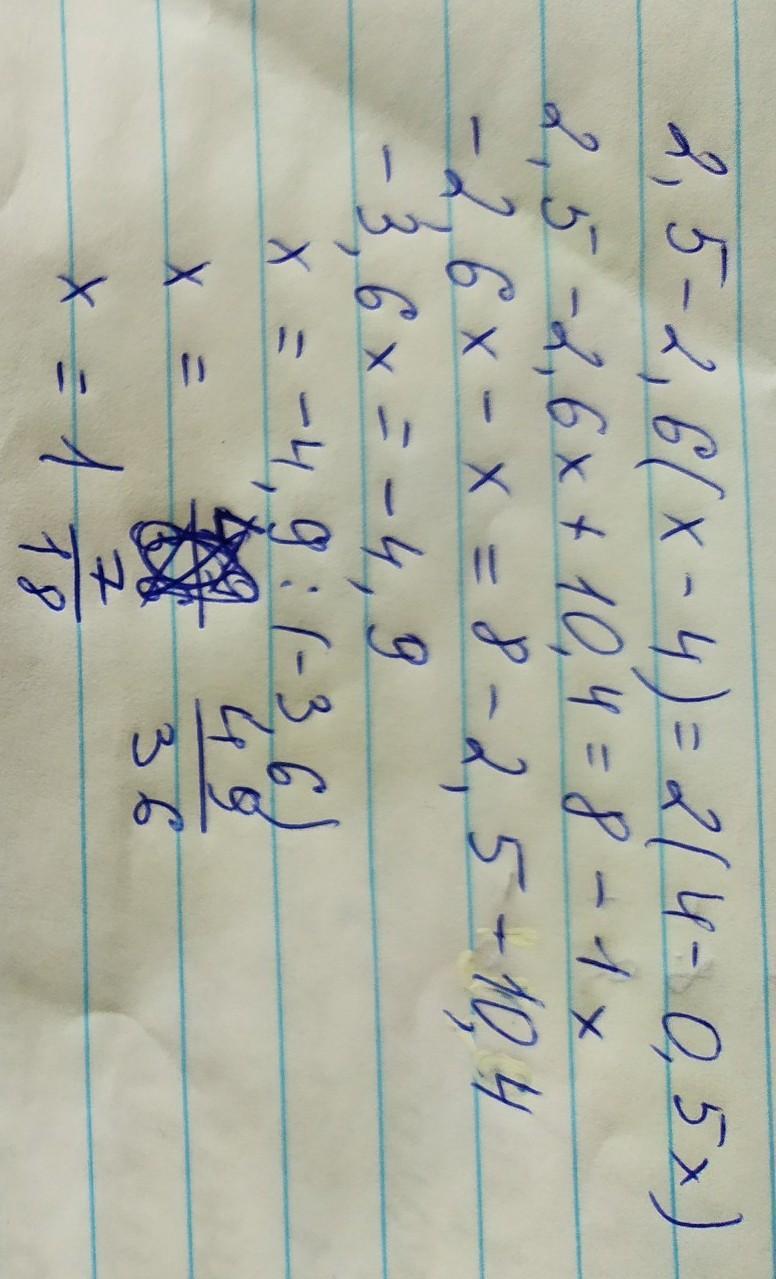 2,5-2,6(x-4)=2(4-0,5x)
2,5-2,6x+10,4=8-1x
-2,6x-x=8-2,5-10,4
-3,6x=-4,9
x=-4,9:(-3 6)
x= 49/36
x=1 7/18